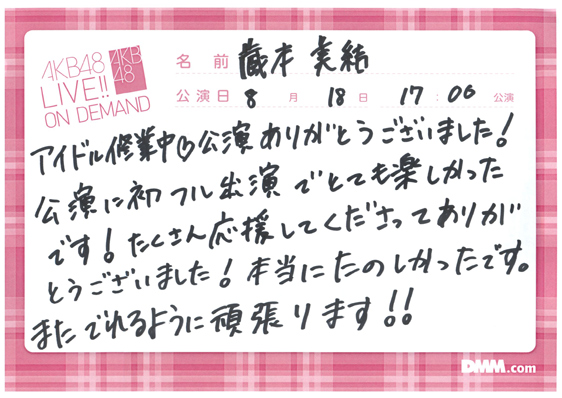 AKB48
LIVE!!
ON DEMAND
AKB
48
名前 蔵本 実結
公演日 8月 18日 17:00 公演
アイドル修業中♡公演ありがとうございました！
公演に初フル出演でとても楽しかった
です！たくさん応援してくださってありが
とうございました！本当にたのしかったです。
またでれるように頑張ります！！
DMM.com